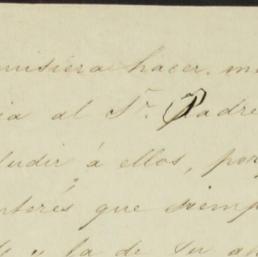 quisiera hacer. me
ia al Sr. Padre
ludir á ellos, por
nterés que siemp
y la de su